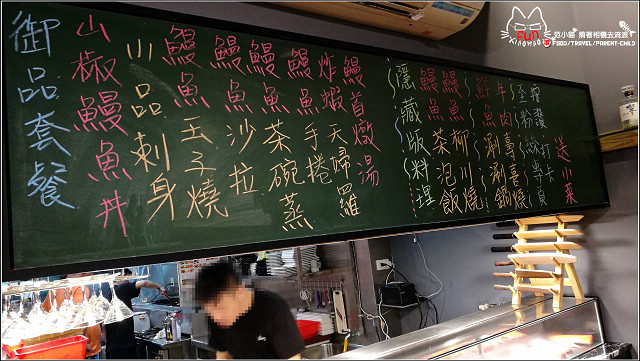 御品套餐
山椒鰻魚丼
川品刺身
鰻魚玉子燒
鰻魚沙拉
鰻魚茶碗蒸
炸蝦手捲
鰻魚天婦羅
鰻首燉湯
隱藏版料理
鰻魚茶泡飯
鰻魚柳川燒
鮮魚涮涮鍋
牛肉壽喜燒
打卡
送小菜
FUN
范小貓 揹著相機去流浪
FOOD/TRAVEL/PARENT-CHILD